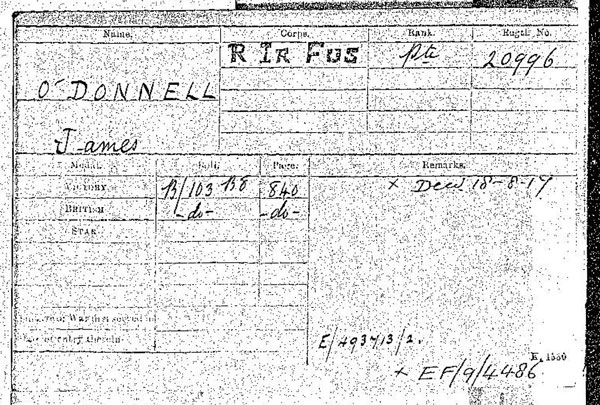 Name. Corps. Rank. Regtl. No.
R IR FUS Pte 20996
O'DONNELL
James
Medal. Roll. Page. Remarks.
VICTORY B/103 B8 840 × Decd 18-8-17
BRITISH -do- -do-
STAR
Theatre of War first served in
Date of entry therein
E/4937/13/2.
K. 1380
× EF/9/4486